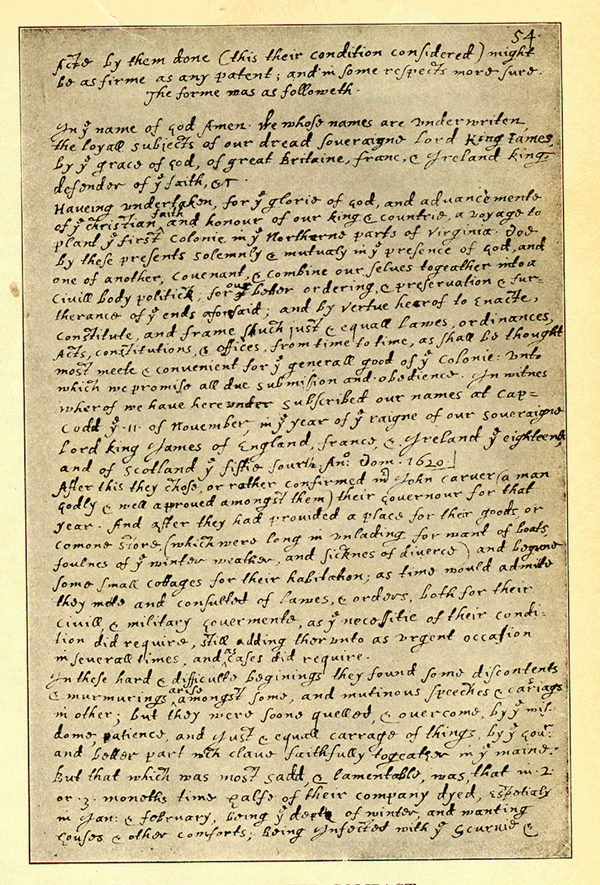 54.
Acts by them done (this their condition considered) might
be as firme as any patent; and in some respects more sure.
The forme was as followeth.
In yᵉ name of God Amen. We whose names are underwriten,
the loyall subjects of our dread soveraigne Lord King James
by yᵉ grace of God, of great Britaine, franc, & Ireland king,
defender of yᵉ faith, &c
Haveing undertaken, for yᵉ glorie of God, and advancemente
of yᵉ christian faith and honour of our king & countrie, a voyage to
plant yᵉ first colonie in yᵉ Northerne parts of Virginia. Doe
by these presents solemnly & mutualy in yᵉ presence of God, and
one of another, covenant, & combine our selves togeather into a
Civill body politick; for our better ordering, & preservation & fur=
therance of yᵉ ends aforesaid; and by vertue hearof to enacte,
constitute, and frame such just & equall Lawes, ordinances,
Acts, constitutions, & offices, from time to time, as shall be thought
most meete & convenient for yᵉ generall good of yᵉ colonie: unto
which we promise all due submission and obedience. In witnes
wherof we have hereunder subscribed our names at Cap=
Codd yᵉ .11. of November, in yᵉ year of yᵉ raigne of our soveraigne
Lord king James of England, france, & Ireland yᵉ eighteenth
and of Scotland yᵉ fiftie fourth. An°: Dom. 1620.
After this they chose, or rather confirmed mʳ John Carver (a man
godly & well aproved amongst them) their Governour for that
year. And after they had provided a place for their goods, or
comone store, (which were long in unlading for want of boats
foulnes of yᵉ winter weather, and sicknes of diverce) and begune
some small cottages for their habitation; as time would admitte
they mette and consulted of lawes, & orders, both for their
civill, & military Govermente, as yᵉ necessitie of their condi=
tion did require, still adding therunto as urgent occasion
in severall times, and as cases did require.
In these hard & difficulte beginings they found some discontents
& murmurings arise amongst some, and mutinous speeches & cariags
in other; but they were soone quelled, & overcome, by yᵉ wis=
dome, patience, and just & equall carrage of things, by yᵉ Govʳ
and better part wᶜʰ clave faithfully togeather in yᵉ maine.
But that which was most sadd, & lamentable, was, that in .2.
or .3. moneths time halfe of their company dyed, espetialy
in Jan: & february, being yᵉ depth of winter, and wanting
houses & other comforts; being Infected with yᵉ Scurvie &